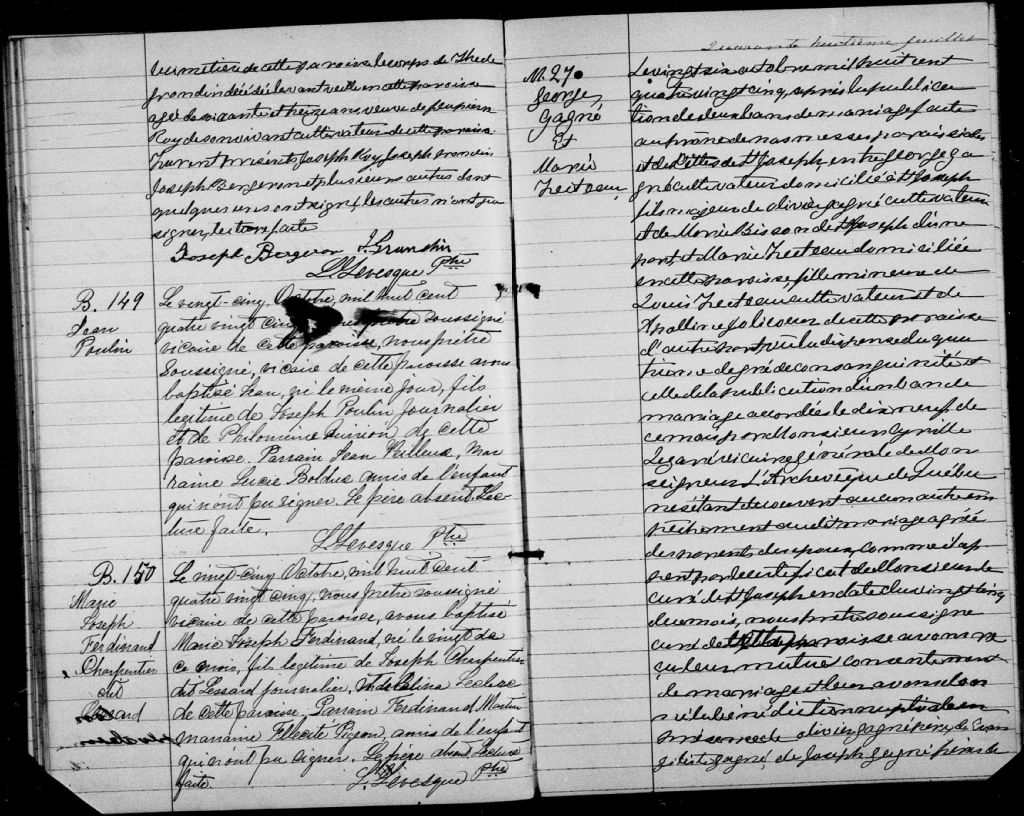 cimetière de cette paroisse le corps de
Grondin décédé l'avant veille en cette paroisse
agée de soixante et treize ans, veuve de feu pierre
Roy de son vivant cultivateur de cette paroisse
Furent présents, Joseph Roy, Joseph Grondin
Joseph Bergeron et plusieurs autres dont
quelques uns ont signé, les autres n'ont pu
signer, lecture faite
Joseph Bergeron J. Grondin
L. Levesque Ptre
B. 149
Jean
Poulin
Le vingt-cinq Octobre, mil huit cent
quatre vingt cinq soussigné
vicaire de cette paroisse, nous prêtre
soussigné, vicaire de cette paroisse avons
baptisé Jean, né le même jour, fils
legitime de Joseph Poulin journalier
et de Philomène de cette
paroisse. Parrain Jean Veilleux, Mar
raine Lucie Bolduc amis de l'enfant
qui n'ont pu signer. Le père absent. Lec-
ture faite.
L. Levesque Ptre
B. 150
Marie
Joseph
Ferdinand
Charpentier
dit
Lessard
Le vingt-cinq Octobre, mil huit cent
quatre vingt cinq, nous prêtre soussigné
vicaire de cette paroisse, avons baptisé
Marie Joseph Ferdinand, né le vingt de
ce mois, fils legitime de Joseph Charpentier
dit Lessard journalier, et de Leclerc
de cette paroisse. Parrain Ferdinand Martin
marraine Félicité Pigeon, amis de l'enfant
qui n'ont pu signer. Le père absent Lecture
faite.
L. Levesque Ptre
Quarante huitième feuillet
M. 27.
George
Gagné
Et
Marie
Le vingt six octobre mil huit cent
quatre vingt cinq, après la publica
tion de deux bans de mariage faite
au prône de nos messes paroissiales
et de celles de St Joseph, entre George Ga
gné cultivateur domicilié à St Joseph
fils majeur de Olivier Gagné cultivateur
et de Marie Bisson de St Joseph d'une
part, et Marie domiciliée
en cette paroisse, fille mineure de
Louis cultivateur et de
Jolicoeur de cette paroisse
d'autre part, vu la dispense du qua
trième degré de consanguinité et
celle de la publication d'un ban de
mariage accordée le dix neuf de
ce mois par Monsieur Cyrille
Legaré vicaire général de Mon
seigneur L'Archevêque de Québec
ne s'étant découvert aucun autre em
pêchement au dit mariage agréé
des parents des époux, comme il ap
pert par le certificat de Monsieur le
curé de St Joseph en date du vingt cinq
du mois, nous prêtre soussigné
curé de cette paroisse avons re
çu leur mutuel consentement
de mariage et leur avons don
né la bénédiction nuptiale en
présence de Olivier Gagné père de
Gagné, de Joseph Gagné frère de